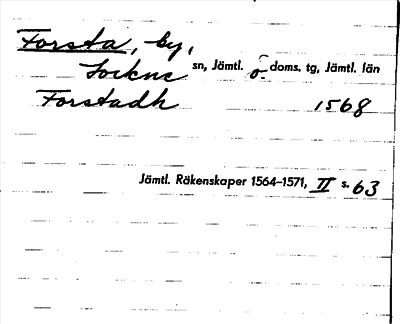 Forsta, by,
Lockne sn, Jämtl. ö. doms. tg, Jämtl. län
Forstadh 1568
Jämtl. Räkenskaper 1564–1571, II s. 63